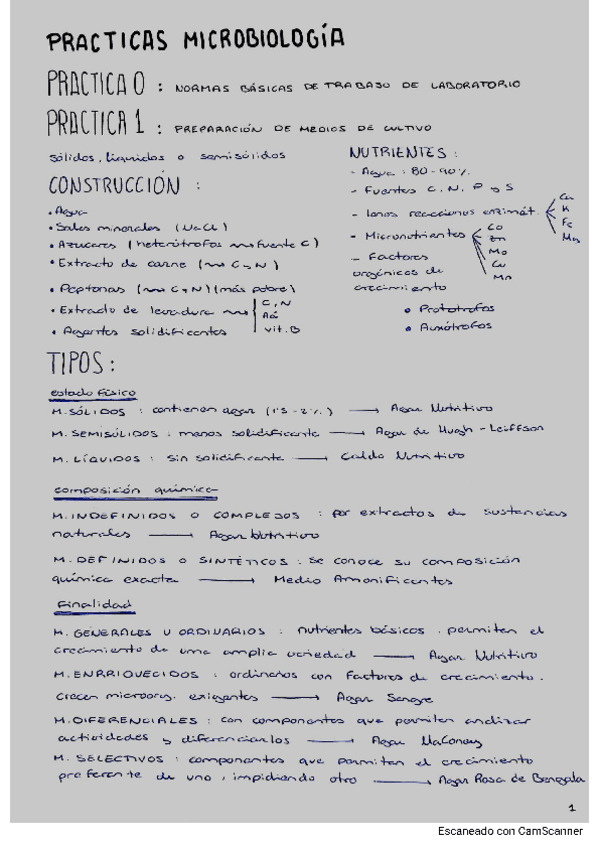 PRACTICAS MICROBIOLOGÍA
PRACTICA 0 : NORMAS BÁSICAS DE TRABAJO DE LABORATORIO
PRACTICA 1 : PREPARACIÓN DE MEDIOS DE CULTIVO
sólidos, líquidos o semisólidos
CONSTRUCCIÓN :
• Agua
• Sales minerales (NaCl)
• Azúcares (heterótrofos → fuente C)
• Extracto de carne (→ C y N)
• Peptonas (→ C y N) (más pobre)
• Extracto de levadura → C, N
Aá
vit. B
• Agentes solidificantes
NUTRIENTES :
- Agua : 80-90%.
- Fuentes C, N, P y S
- Iones reacciones enzimát.
K
Fe
- Micronutrientes
Co
Zn
Mo
Cu
Mn
- Factores
orgánicos de
crecimiento
• Protótrofos
• Auxótrofos
TIPOS :
estado físico
M. SÓLIDOS : contienen agar (1'5-2%) → Agar Nutritivo
M. SEMISÓLIDOS : menos solidificante → Agar de Hugh-Leiffson
M. LÍQUIDOS : sin solidificante → Caldo Nutritivo
composición química
M. INDEFINIDOS O COMPLEJOS : por extractos de sustancias
naturales → Agar Nutritivo
M. DEFINIDOS O SINTÉTICOS : se conoce su composición
química exacta → Medio Amonificantes
Finalidad
M. GENERALES U ORDINARIOS : nutrientes básicos. permiten el
crecimiento de una amplia variedad → Agar Nutritivo
M. ENRRIQUECIDOS : ordinarios con factores de crecimiento.
crecen microorg. exigentes → Agar Sangre
M. DIFERENCIALES : con componentes que permiten analizar
actividades y diferenciarlos → Agar MaConey
M. SELECTIVOS : componentes que permiten el crecimiento
preferente de uno, impidiendo otro → Agar Rosa de Bengala
1
Escaneado con CamScanner